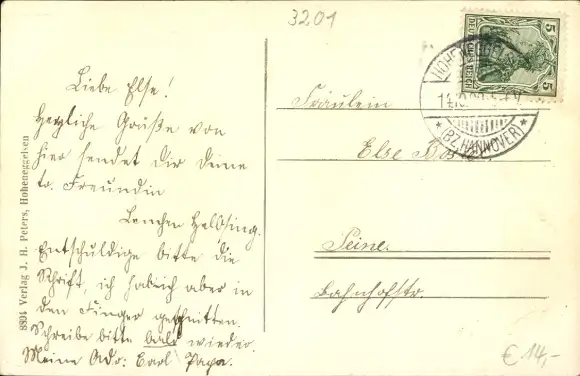 3201
Liebe Else!
Herzliche Grüße von
hier sendet dir deine
tr. Freundin
Lenchen Helbsing.
Entschuldige bitte die
Schrift, ich habe mich aber in
den Finger geschnitten.
Schreibe bitte bald wieder.
Meine Adr: Carl Papa.
8804 Verlag J. H. Peters, Hoheneggelsen
5 5
DEUTSCHES REICH
HOHENEGGELSEN
*(BZ. HANNOVER)*
Fräulein
Else
Peine.
Bahnhofstr.
€ 14,-